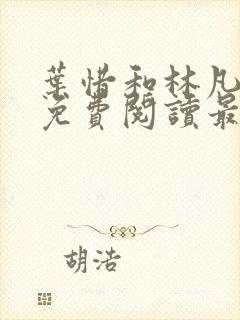 葉惜和林凡
免費閱讀最
胡浩